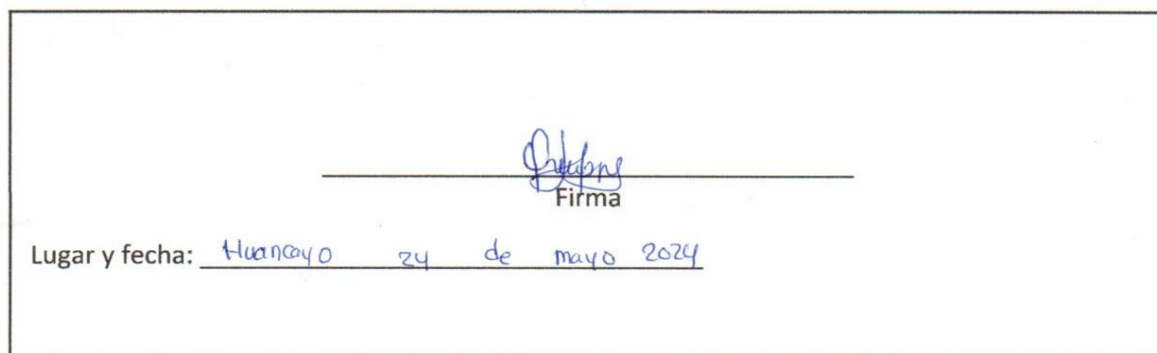 Firma
Lugar y fecha: Huancayo 24 de mayo 2024